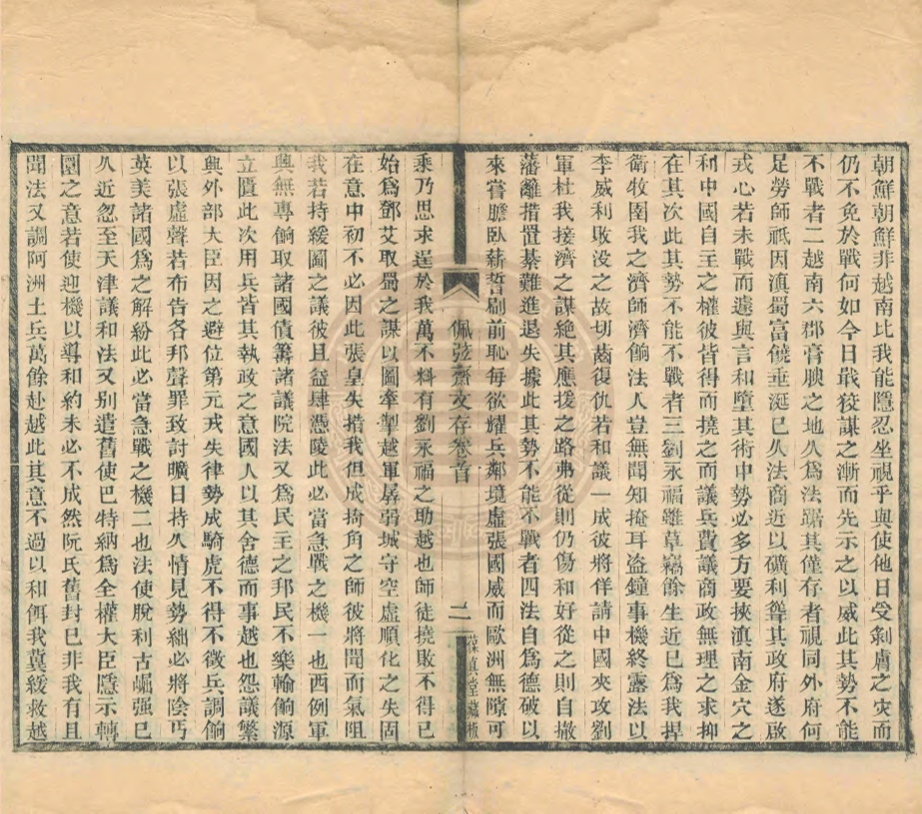 朝鮮朝鮮非越南比我能隱忍坐視乎與使他日受剝膚之灾而
仍不免於戰何如今日戢狡謀之漸而先示之以威此其勢不能
不戰者二越南六郡膏腴之地久爲法踞其僅存者視同外府何
足勞師祇因滇蜀富饒垂涎已久法商近以礦利聳其政府遂啟
戎心若未戰而遽與言和墮其術中勢必多方要挾滇南金穴之
利中國自主之權彼皆得而撓之而議兵費議商政無理之求抑
在其次此其勢不能不戰者三劉永福雖草竊餘生近已爲我捍
衛牧圉我之濟師濟餉法人豈無聞知掩耳盜鐘事機終露法以
李威利敗没之故切齒復仇若和議一成彼將佯請中國夾攻劉
軍杜我接濟之謀絕其應援之路弗從則仍傷和好從之則自撤
藩離措置棊難進退失據此其勢不能不戰者四法自爲德破以
來嘗膽臥薪誓刷前恥每欲耀兵鄰境虛張國威而歐洲無隙可
佩弦齋文存卷首
二
葆真堂藏板
乘乃思求逞於我萬不料有劉永福之助越也師徒撓敗不得已
始爲鄧艾取蜀之謀以圖牽掣越軍孱弱城守空虛順化之失固
在意中初不必因此張皇失措我但成掎角之師彼將聞而氣阻
我若持緩圖之議彼且益肆憑陵此必當急戰之機一也西例軍
興無專餉取諸國債籌諸議院法又爲民主之邦民不樂輸餉源
立匱此次用兵皆其執政之意國人以其舍德而事越也怨議繁
興外部大臣因之避位第元戎失律勢成騎虎不得不徵兵調餉
以張虛聲若布告各邦聲罪致討曠日持久情見勢絀必將陰丐
英美諸國爲之解紛此必當急戰之機二也法使脫利古崛强已
久近忽至天津議和法又别遣舊使巴特納爲全權大臣隱示轉
圜之意若使迎機以導和約未必不成然阮氏舊封已非我有且
聞法又調阿洲土兵萬餘赴越此其意不過以和餌我冀緩救越